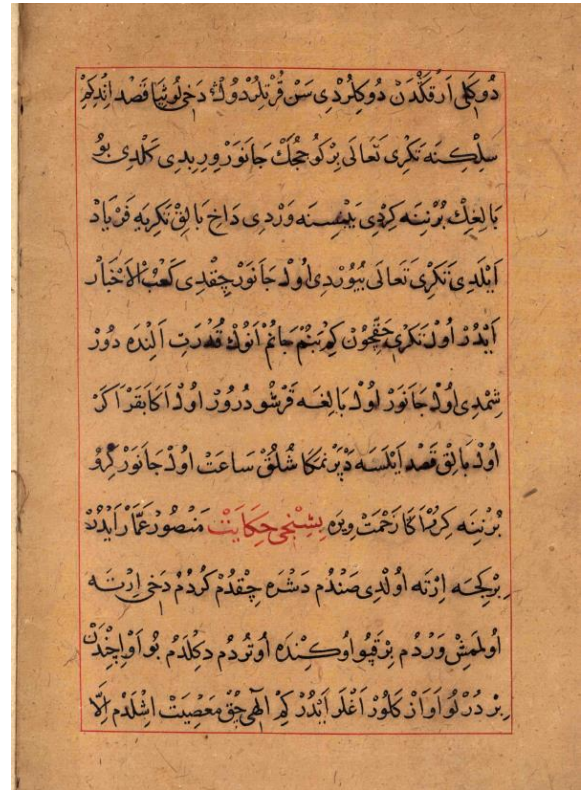 دُوكَلِى اَرْقَڭْدَنْ دُوكُلُرْدِى سَنْ قُرْتِلُرْدُوڭْ دَخِى لُوشِيَا قَصْد اِتْدِكِمْ
سِلْكِنَه تَڭْرِى تَعَالَى بِرْ كُوجُجُكْ جَانَوَرْ وِرِبِدِى كَلْدِى بُو
بَالِغِڭْ بُرْنِنَه كِرْدِى يَيْنِسِنَه وَرْدِى دَاخِ بَالِقْ تَڭْرِيَه فَرْيَادْ
اَيْلَدِى تَڭْرِى تَعَالَى بُيُورْدِى اُولْ جَانَوَرْ چِقْدِى كَعْبُ الْاَخْبَارْ
اَيْدُرْ اُولْ تَڭْرِى حَقِّچُونْ كِمْ بَنُمْ جَانُمْ اَنُوڭْ قُدْرَتِ اَلِنْدَه دُورْ
شِمْدِى اُولْ جَانَوَرْ اُولْ بَالِغَه قَرْشُو دُرُورْ اُولْ اَڭَا بَقَرْ اَكَرْ
اُولْ بَالِقْ قَصْد اَيْلَسَه دَپْرَنْمَكَا شُلُقْ سَاعَتْ اُولْ جَانَوَرْ كِرُو
بُرْنِنَه كِرَرْ اَڭَا زَحْمَتْ وِيرَه بِشِنْجِى حِكَايَتْ مَنْصُورْ عَمَّارْ اَيْدُرْ
بِرْ كِجَه اِرْتَه اُولْدِى صَنْدُمْ دَشْرَه چِقْدُمْ كُرْدُمْ دَخِى اِرْتَه
اُولْمَمِشْ وَرْدُمْ بِرْ قَپُو اُوكِنْدَه اُوتُرْدُمْ دِكْلَدُمْ بُو اَوْ اِچِنْدَنْ
بِرْ دُرْلُو اَوَازْ كَلُورْ اَغْلَرْ اَيْدُرْ كِمْ اِلٰهِى چُقْ مَعْصِيَتْ اِشْلَدُمْ اِلَّا